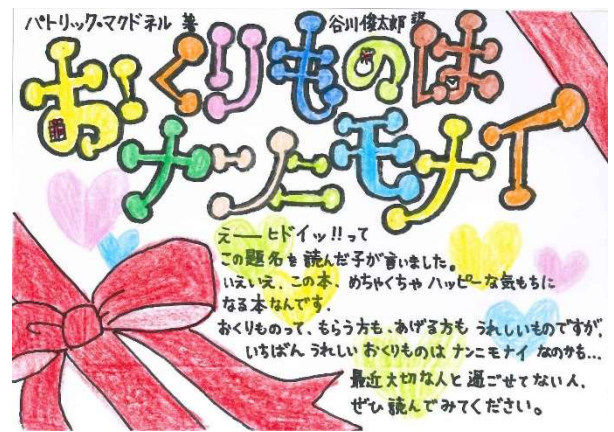 パトリック・マクドネル 著 谷川俊太郎 訳
おくりものは
ナンニモナイ
えーーヒドイッ!!って
この題名を読んだ子が言いました。
いえいえ、この本、めちゃくちゃハッピーな気もちに
なる本なんです。
おくりものって、もらう方も、あげる方もうれしいものですが、
いちばんうれしいおくりものはナンニモナイなのかも...
最近大切な人と過ごせてない人、
ぜひ読んでみてください。